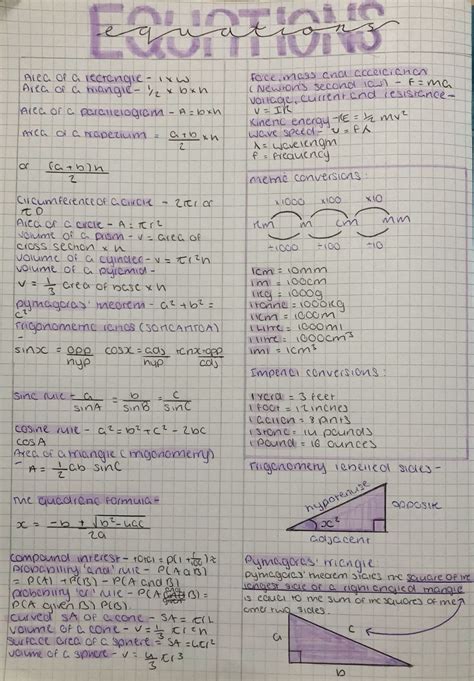 EQUATIONS
equations
Area of a rectangle - l x w
Area of a triangle - 1/2 x b x h
Area of a parallelogram - A = b x h
Area of a trapezium = a+b/2 x h
or (a+b)h/2
Circumference of a circle - 2πr or
πD
Area of a circle - A = πr²
Volume of a prism - V = area of
cross section x h
Volume of a cylinder - V = πr²h
Volume of a pyramid -
V = 1/3 area of base x h
Pythagoras' theorem - a² + b² =
c²
Trigonometric ratios (SOHCAHTOA)
sinx = opp/hyp cosx = adj/hyp tanx = opp/adj
sine rule - a/sinA = b/sinB = c/sinC
cosine rule - a² = b² + c² - 2bc
cosA
Area of a triangle (trigonometry)
- A = 1/2 ab sinC
The quadratic formula =
x = -b ± √b²-4ac/2a
compound interest - total = P(1 + r/100)n
probability 'and' rule - P(A or B)
= P(A) + P(B) - P(A and B)
probability 'or' rule - P(A and B) =
P(A given B) P(B)
curved SA of a cone - SA = πrl
volume of a cone - V = 1/3 πr²h
surface area of a sphere = SA = 4πr²
volume of a sphere - V = 4/3 πr³
Force, mass and acceleration
(Newton's second law) - F = ma
Voltage, current and resistance -
V = IR
Kinetic energy - KE = 1/2 mv²
wave speed - V = fλ
λ = wavelength
f = frequency
metric conversions:
x1000 x100 x10
km m cm mm
÷1000 ÷100 ÷10
1cm = 10mm
1m = 100cm
1kg = 1000g
1tonne = 1000kg
1km = 1000m
1 litre = 1000ml
1 litre = 1000cm³
1ml = 1cm³
Imperial conversions:
1 yard = 3 feet
1 foot = 12 inches
1 gallon = 8 pints
1 stone = 14 pounds
1 pound = 16 ounces
Trigonometry labelled sides -
hypotenuse
opposite
x°
adjacent
Pythagoras' triangle
Pythagoras' theorem states the square of the
longest side of a right angled triangle
is equal to the sum of the squares of the
other two sides.
a
c
b